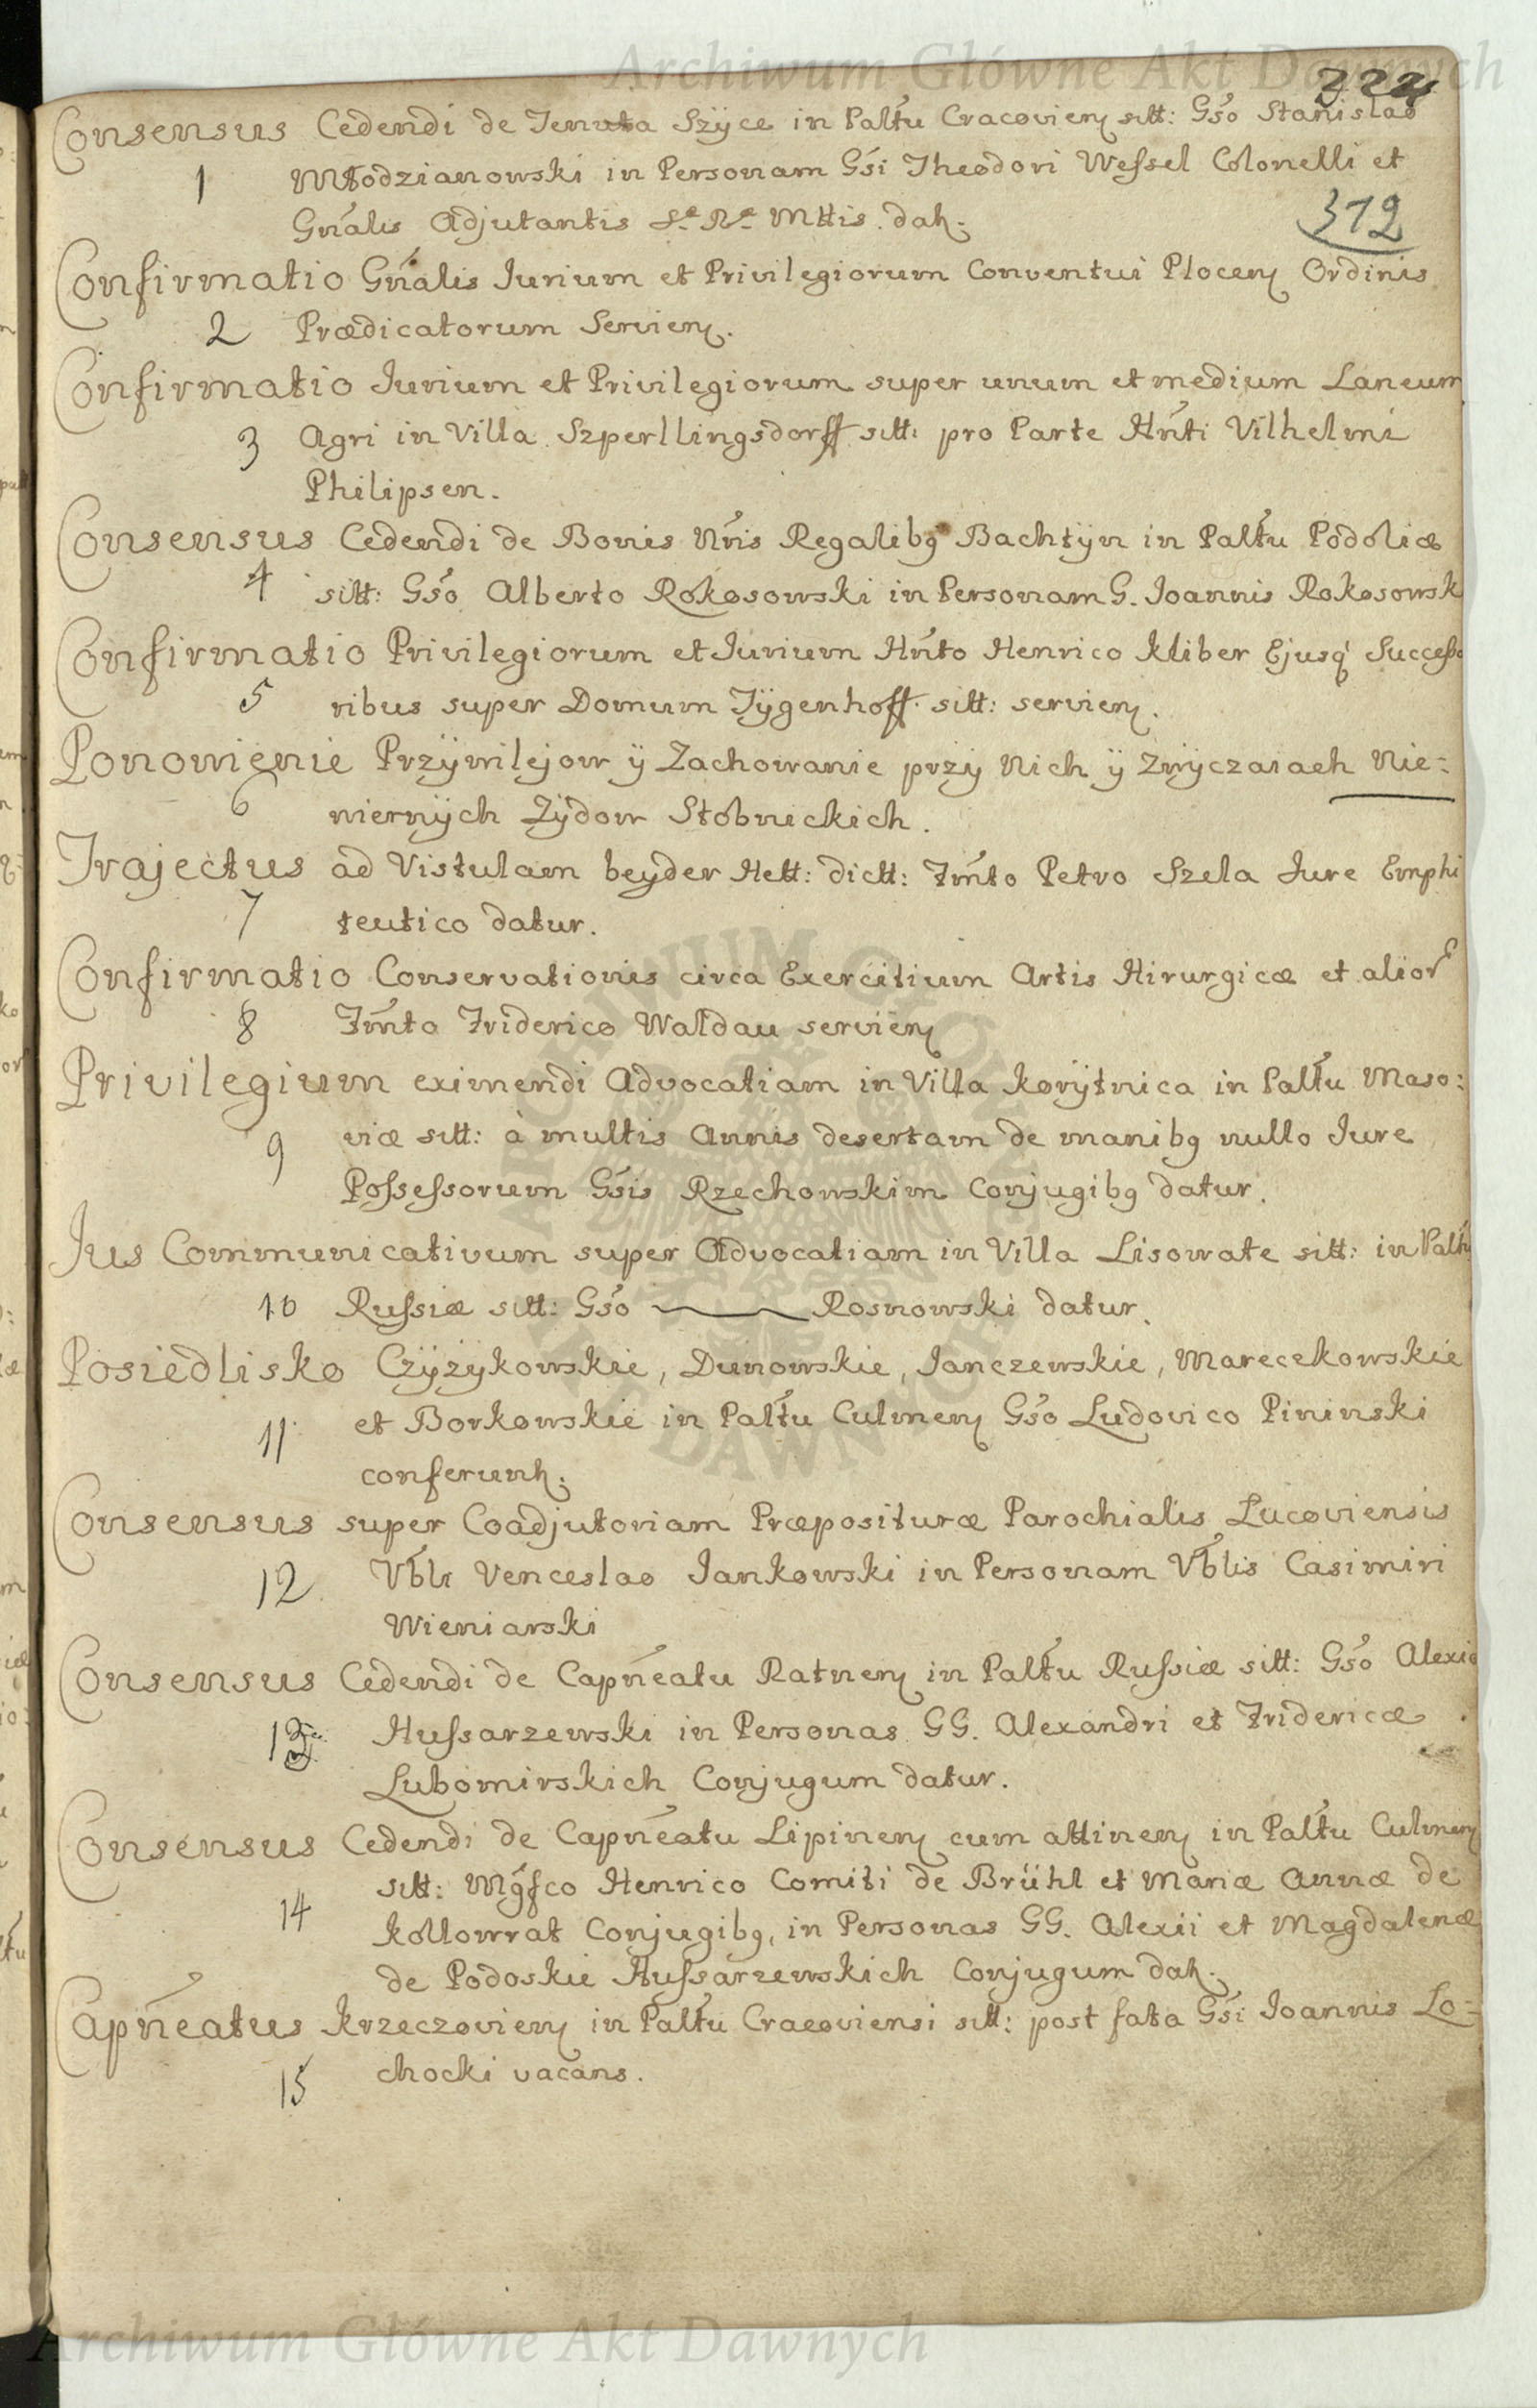 Archiwum Główne Akt Dawnych
Consensus Cedendi de Tenuta Szÿce in Palťu Cracovien sitt: Gs̃o Stanislao
1 Młodzianowski in Personam Gs̃i Theodori Wessel Colonelli et
Gñalis Adjutantis Sæ Ræ Mttis. dat.
312
Confirmatio Gñalis Jurium et Privilegiorum Conventui Plocen Ordinis
2 Prædicatorum Servien.
Confirmatio Jurium et Privilegiorum super unum et medium Laneum
3 Agri in Villa Szperllingsdorff sitt: pro Parte Hñti Vilhelmi
Philipsen.
Consensus Cedendi de Bonis Nr̃is Regalibq Bachtÿn in Palťu Podoliæ
4 sitt: Gs̃o Alberto Rokosowski in Personam G. Joannis Rokosowsk
Confirmatio Privilegiorum et Jurium Hñto Henrico Kliber Ejusq̃ Successo
5 ribus super Domum Tÿgenhoff sitt: servien.
Ponowienie Przÿwilejow ÿ Zachowanie przÿ Nich ÿ Zwÿczaiach Nie-
6 wiernÿch Zÿdow Stobnickich.
Trajectus ad Vistulam beyder Hett: dictt: Fm̃to Petro Szela Jure Emphi
7 teutico datur.
Confirmatio Conservationis circa Exercitium Artis Hirurgicæ et alior
8 Fm̃to Friderico Waldau servien
Privilegium eximendi Advocatiam in Villa Korÿtnica in Palťu Maso:
9 viæ sitt: à multis Annis desertam de manibq nullo Jure
Possessorum Gs̃is Rzechowskim Conjugibq datur.
Jus Communicativum super Advocatiam in Villa Lisowate sitt: in Palťu
10 Russiæ sitt: Gs̃o Rosnowski datur.
Posiedlisko Czÿzÿkowskie, Dunowskie, Janczewskie, Mareczkowskie
11 et Borkowskie in Palťu Culmen Gs̃o Ludovico Pininski
conferunt.
Consensus super Coadjutoriam Præposituræ Parochialis Lucoviensis
12 Vbl̃i Venceslao Jankowski in Personam Vbl̃is Casimiri
Wieniarski
Consensus Cedendi de Capñeatu Ratnen in Palťu Russiæ sitt: Gs̃o Alexio
13 Hussarzewski in Personas GG. Alexandri et Fridericæ
Lubomirskich Conjugum datur.
Consensus Cedendi de Capñeatu Lipinen cum attinen in Palťu Culmen
sitt: Mg̃fco Henrico Comiti de Brühl et Mariæ Annæ de
14 Kollowrat Conjugibq, in Personas GG. Alexii et Magdalenæ
de Podoskie Hussarzewskich Conjugum dat.
Capñeatus Krzeczovien in Palťu Cracoviensi sitt: post fata Gs̃i Joannis Lo-
15 chocki vacans.
Archiwum Główne Akt Dawnych